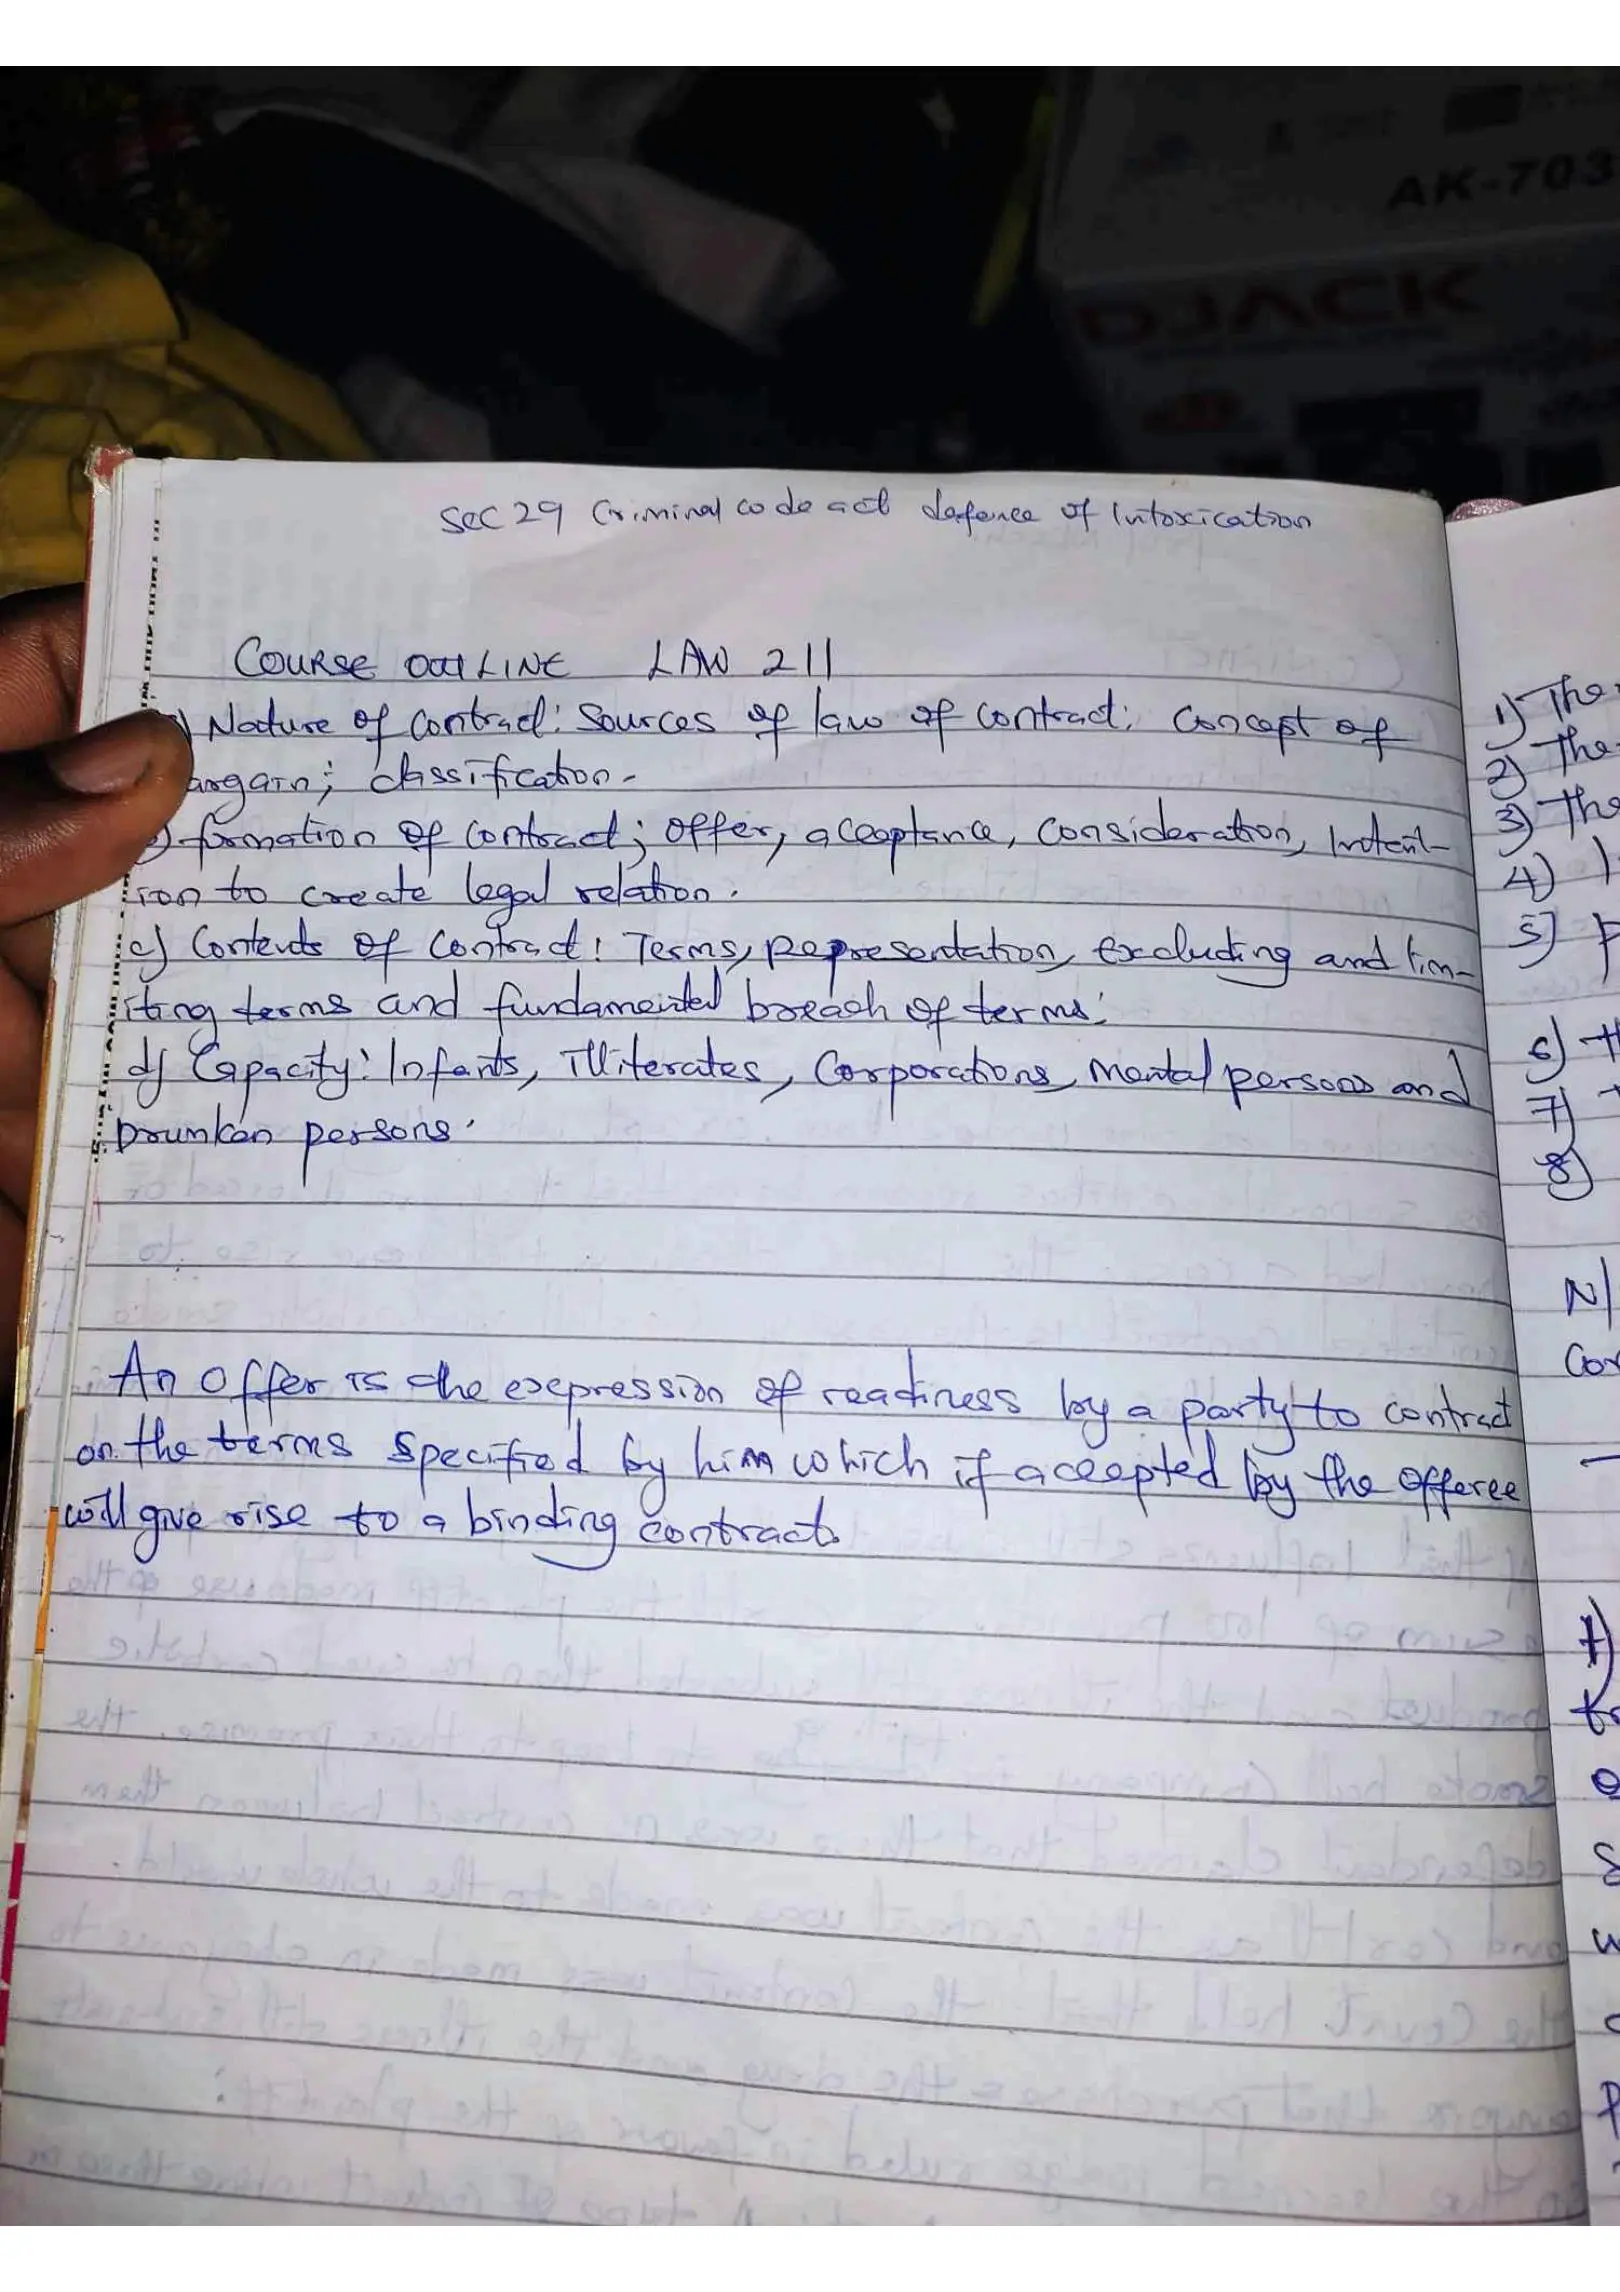 AK-703
DJACK
Sec 29 Criminal code act defence of Intoxication
COURSE OUTLINE LAW 211
Nature of contract: Sources of law of contract: Concept of
argain; classification.
formation of contract; offer, acceptance, consideration, Intent-
ion to create legal relation.
c) Contents of contract: Terms, Representation, Excluding and lim-
iting terms and fundamental breach of terms:
d) Capacity: Infants, Illiterates, Corporations, Mental persons and
Drunken persons.
An offer is the expression of readiness by a party to contract
on the terms specified by him which if accepted by the offeree
will give rise to a binding contract.
1) The
2) The
3) The
4)
5)
6)
7)
8)
N/
Con